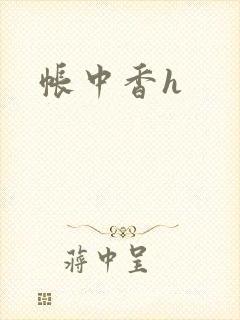 帐中香h
蒋中呈